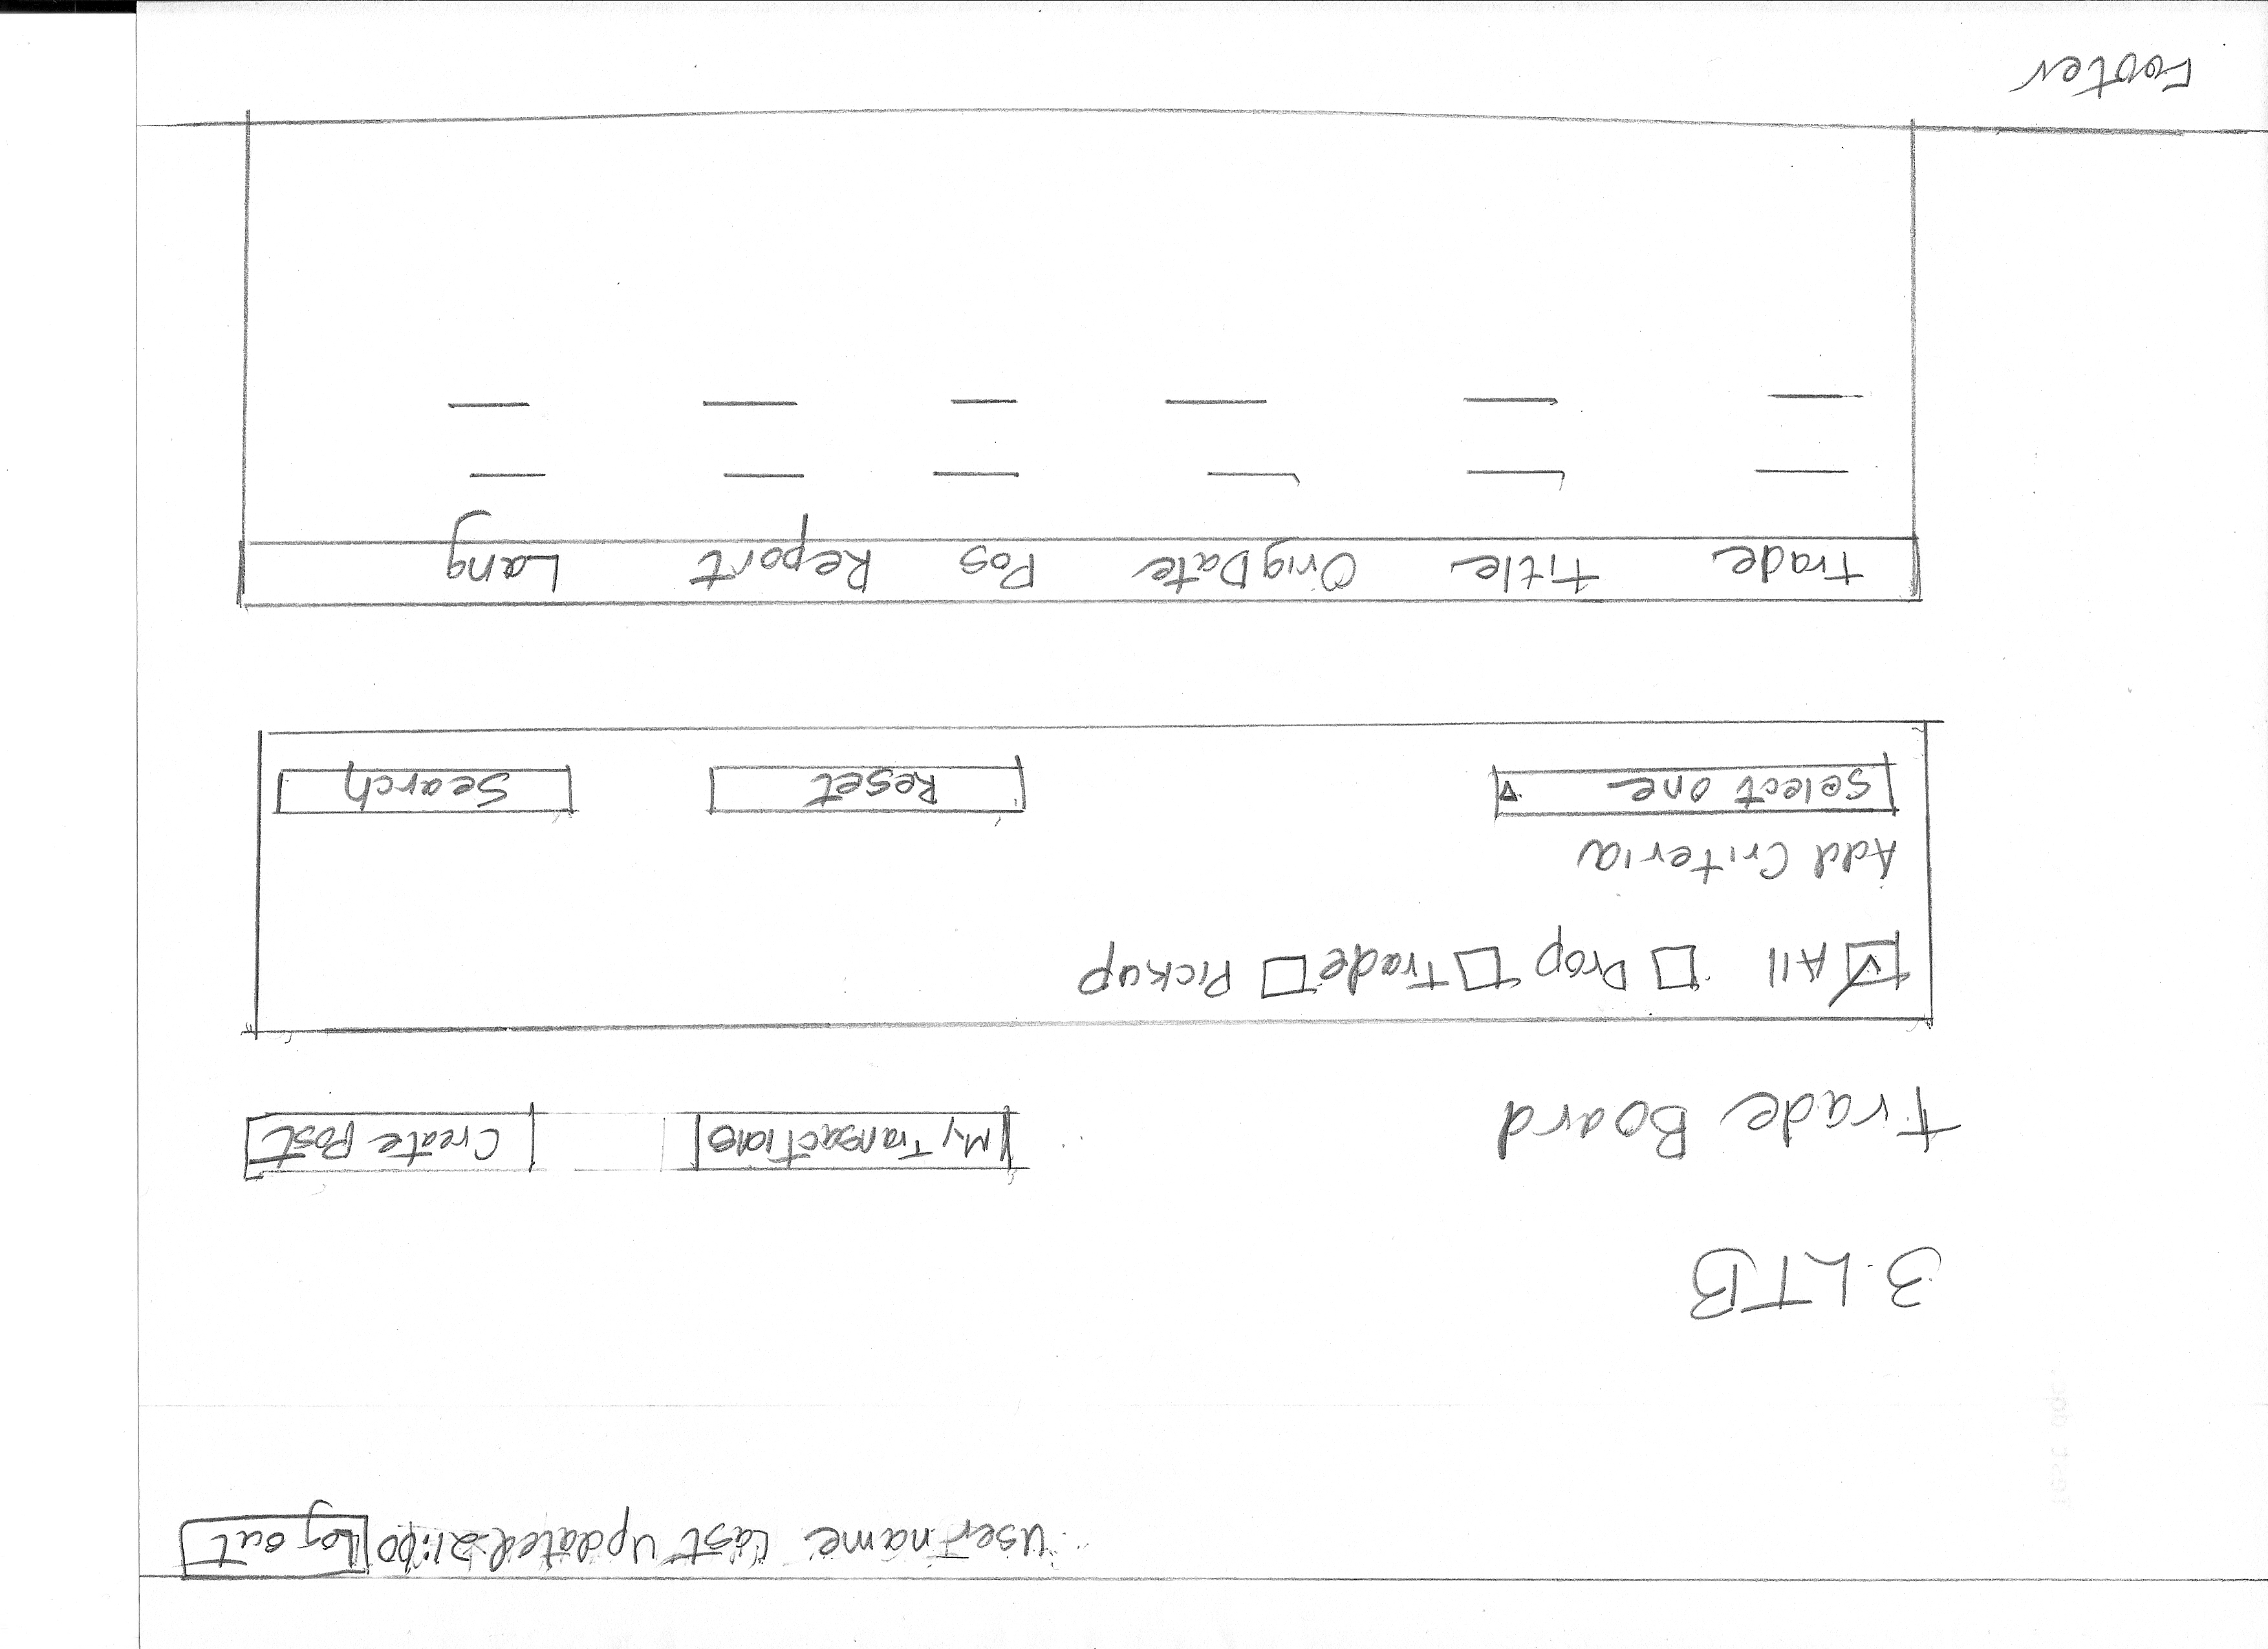 User name Last Updated 21:00 Log out
3. LTB
Trade Board
My Transactions
Create Post
All Drop Trade Pickup
Add Criteria
Select one
Reset
Search
Trade Title Orig Date Pos Report Lang
Footer